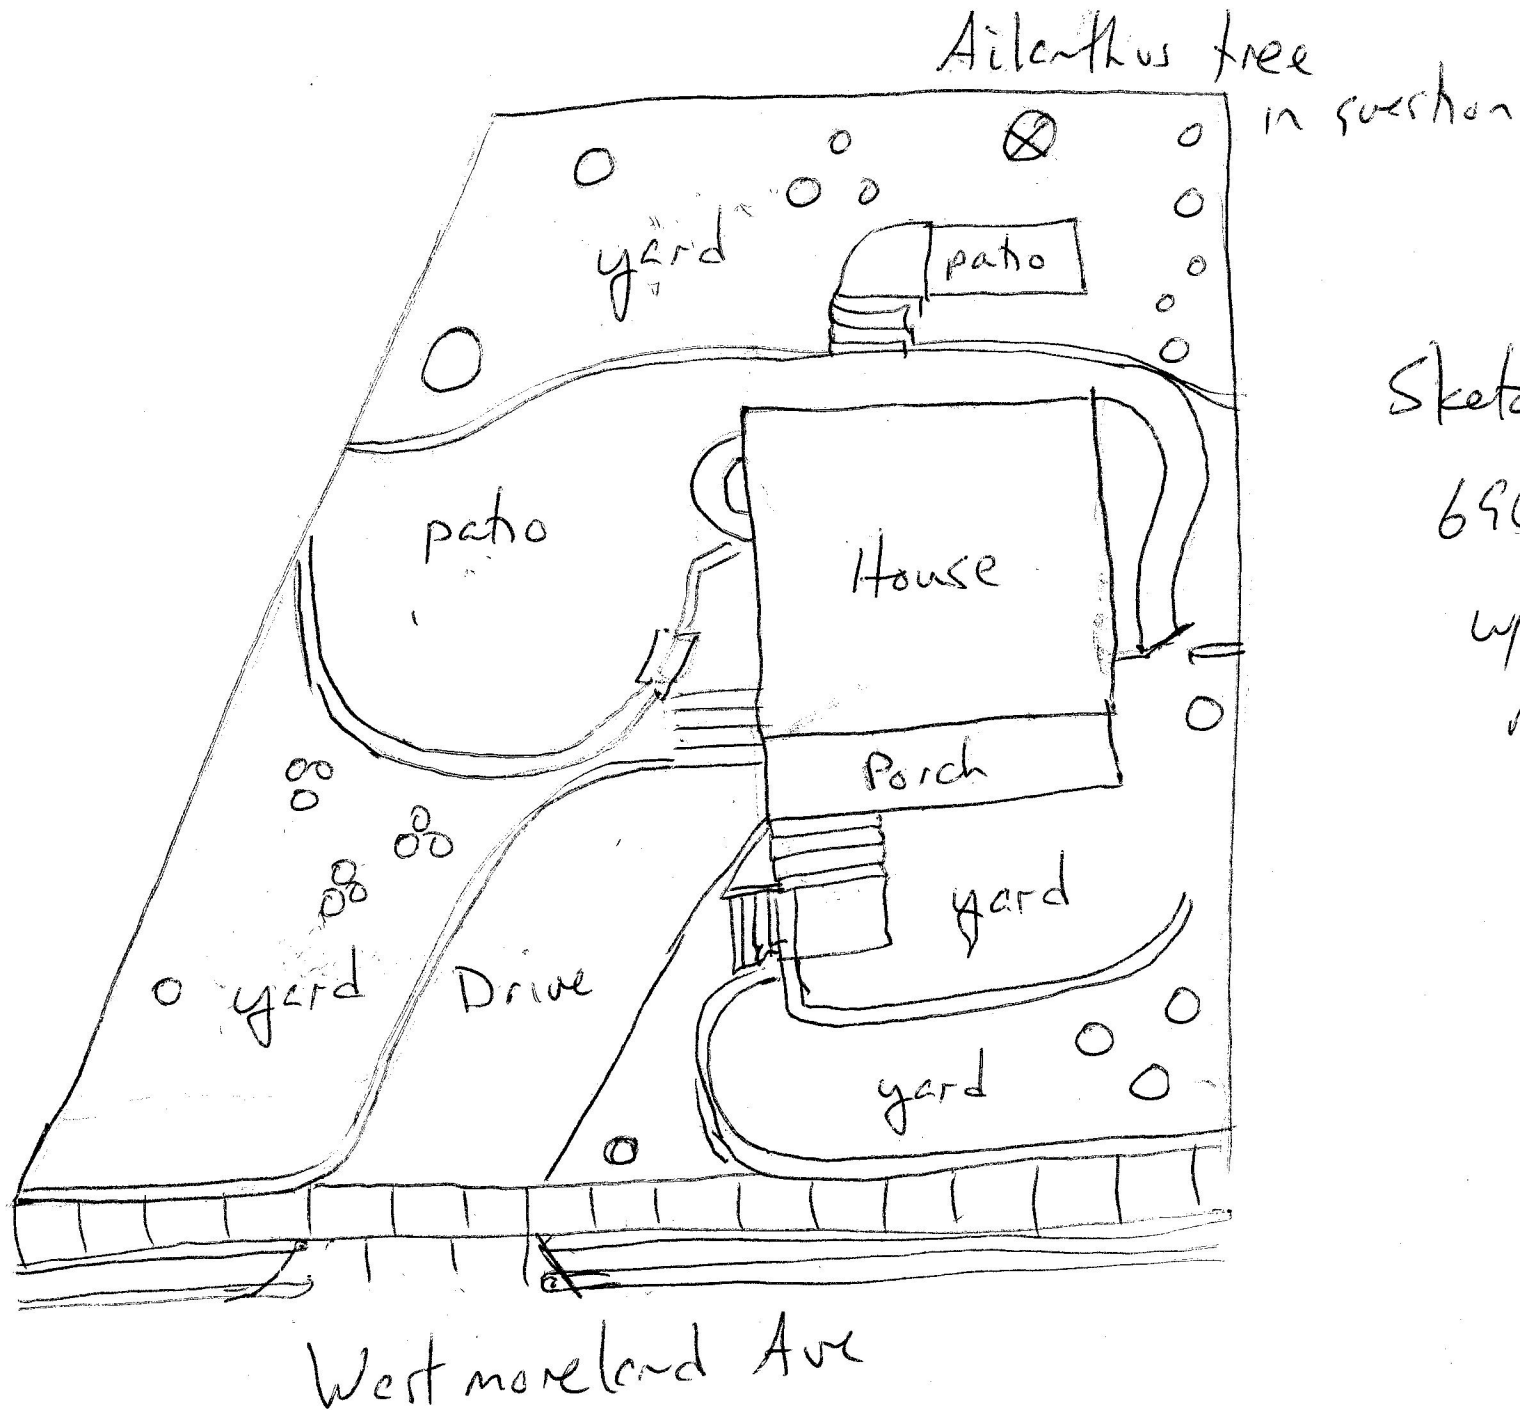 Ailanthus tree
in question
yard
patio
Sketc
patio
House
690
w/
Porch
yard
yard
Drive
yard
Westmoreland Ave